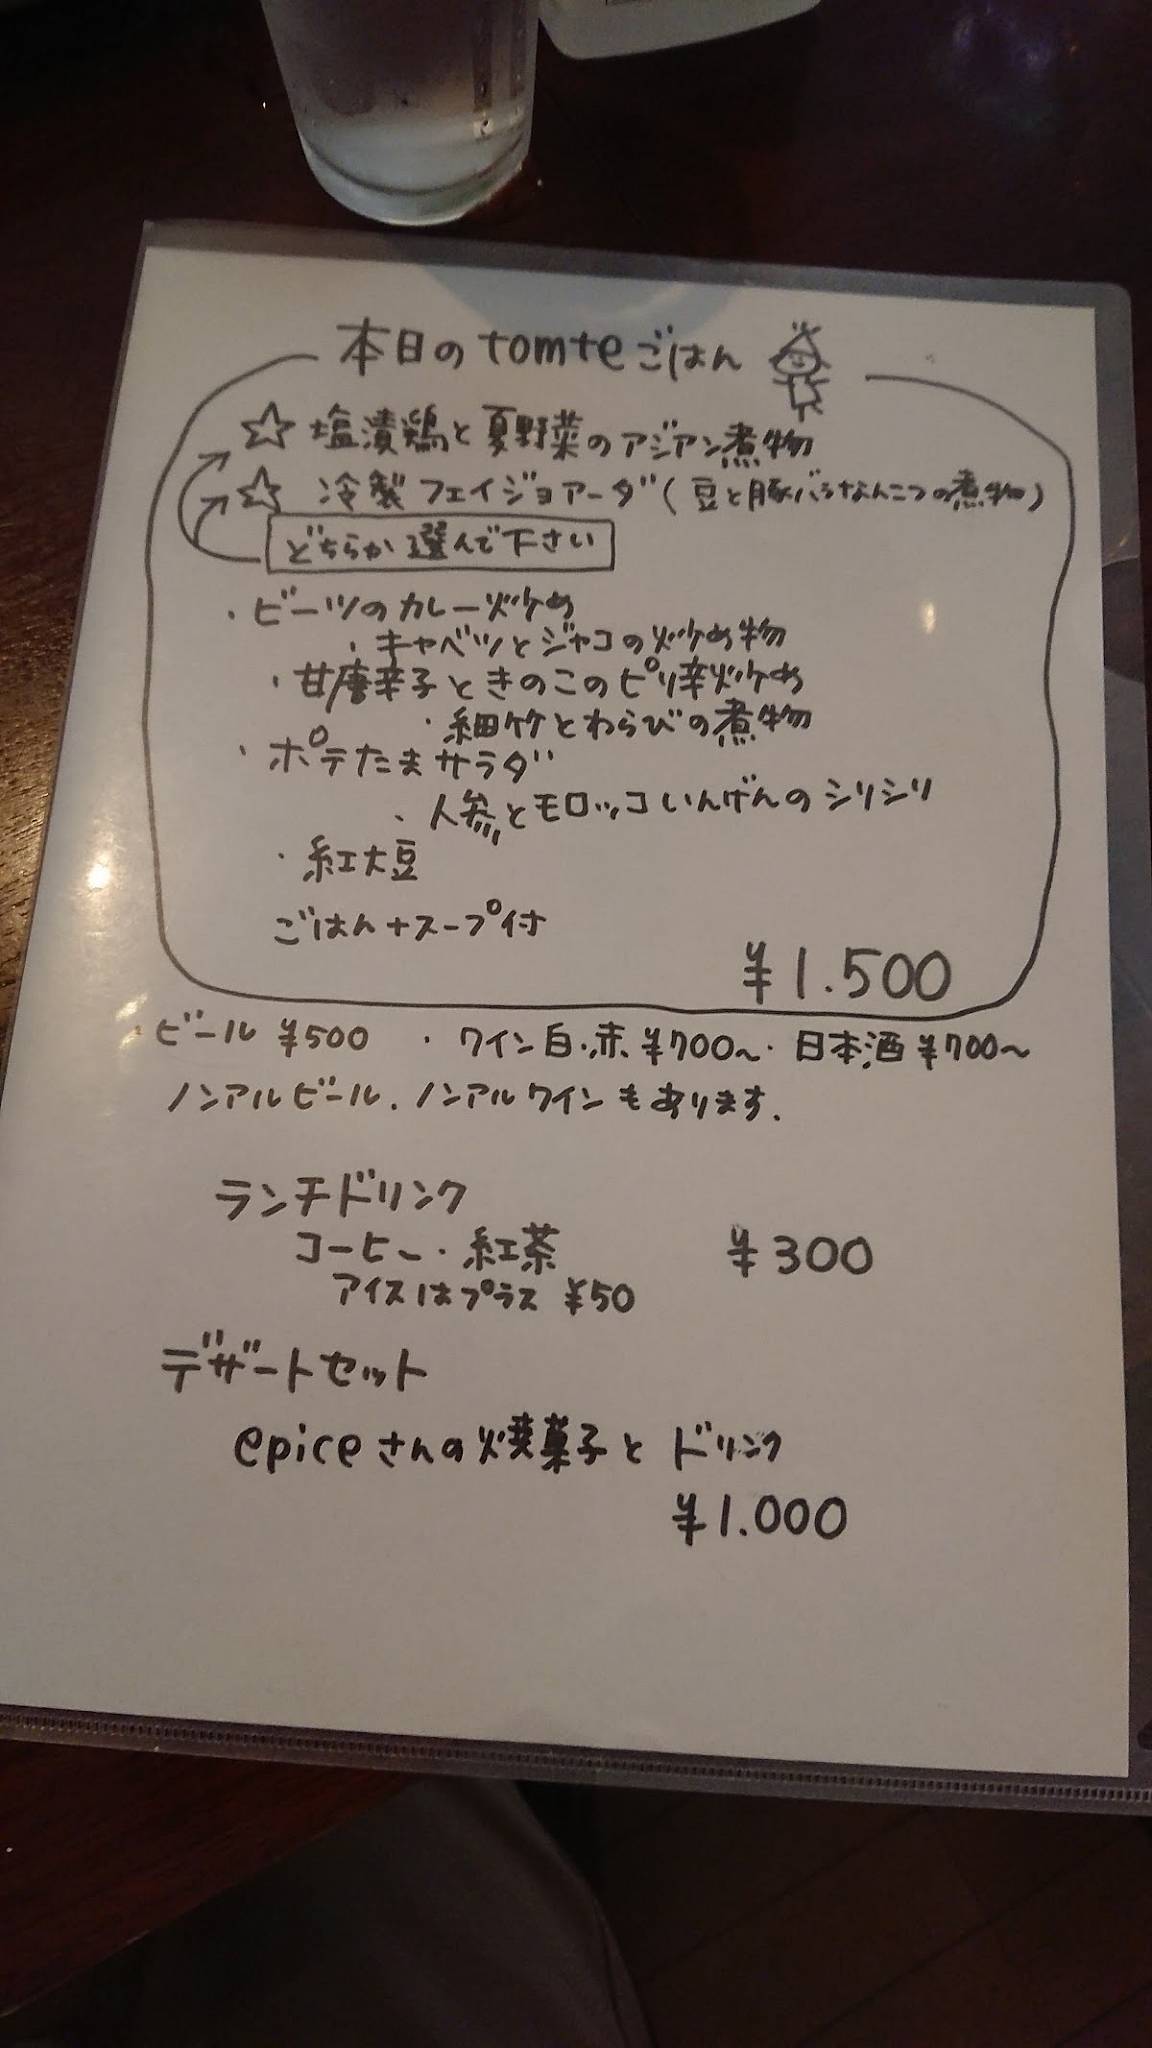 本日のtomteごはん
☆ 塩漬鶏と夏野菜のアジアン煮物
☆ 冷製フェイジョアーダ(豆と豚バラなんこつの煮物)
どちらか選んで下さい
・ビーツのカレー炒め
・キャベツとジャコの炒め物
・甘唐辛子ときのこのピリ辛炒め
・細竹とわらびの煮物
・ポテたまサラダ
・人参とモロッコいんげんのシリシリ
・紅大豆
ごはん+スープ付
¥1.500
・ビール ¥500 ・ワイン白・赤 ¥700~・日本酒 ¥700~
ノンアルビール、ノンアルワインもあります.
ランチドリンク
コーヒー・紅茶 ¥300
アイスはプラス ¥50
デザートセット
epiceさんの焼菓子とドリンク
¥1.000